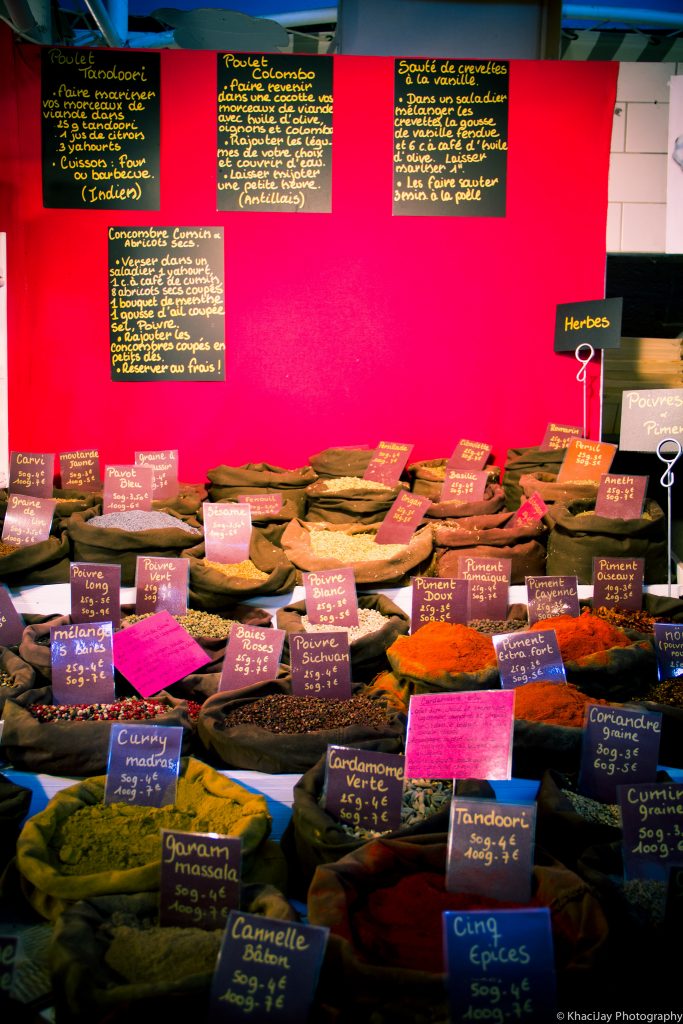 Poulet
Tandoori
• Faire mariner
vos morceaux de
viande dans
25g tandoori
1 jus de citrons
3 yahourts
• Cuisson: Four
ou barbecue.
(Indien)
Poulet
Colombo
• Faire revenir
dans une cocotte vos
morceaux de viande
avec huile d'olive,
oignons et colombo
• Rajouter les légu-
mes de votre choix
et couvrir d'eau.
• Laisser mijoter
une petite heure.
(Antillais)
Sauté de crevettes
à la vanille.
• Dans un saladier
mélanger les
crevettes, la gousse
de vanille fendue
et 6 c. à café d'huile
d'olive. Laisser
mariner 1h.
• Les faire sauter
3 min à la poêle
Concombre Cumin &
Abricots secs.
• Verser dans un
saladier 1 yahourt,
1 c. à café de cumin,
8 abricots secs coupés
1 bouquet de menthe
1 gousse d'ail coupée
sel, Poivre.
• Rajouter les
concombres coupés en
petits dés.
• Réserver au frais!
Herbes
Poivres
et
Pimen
Carvi
50g-4€
moutarde
Jaune
Pavot Bleu
50g-3,5€
100g-6€
graine à
Romarin
Persil
25g-3€
50g-5€
Persillade
Citronnelle
Basilic
Origan
Aneth
25g-3€
50g-5€
graine
de Lin
Fenouil
Sésame
50g-3,5€
100g-6€
Poivre
Long
25g-5€
50g-9€
Poivre
Vert
25g-5€
50g-9€
Poivre
Blanc
Piment
Doux
Piment
Jamaïque
Piment
Cayenne
Piment
Oiseaux
mélange
5 Baies
25g-4€
50g-7€
Baies
Roses
25g-4€
50g-7€
Poivre
Sichuan
25g-4€
50g-7€
Piment
Extra.fort
25g-3€
50g-5€
Curry
madras
50g-4€
100g-7€
Cardamome
Verte
25g-4€
50g-7€
Coriandre
graine
30g-3€
60g-5€
Tandoori
50g-4€
100g-7€
Cumin
graine
garam
massala
50g-4€
100g-7€
Cannelle
Bâton
50g-4€
100g-7€
Cinq
Epices
50g-4€
100g-7€
© KhaciJay Photography